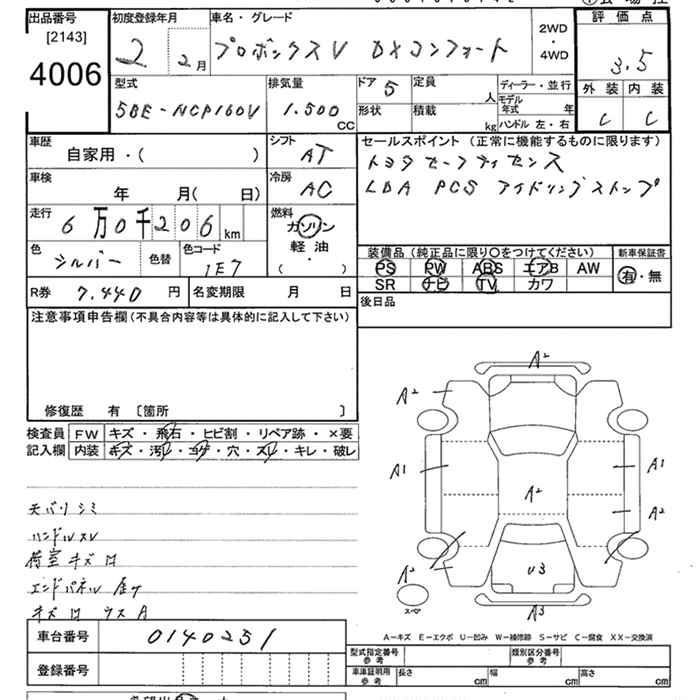 出品番号 初度登録年月 車名・グレード 評価点
[2143]
4006
2 2月 プロボックスV DXコンフォート 2WD・4WD 3.5
型式 排気量 ドア 5 定員 人 ディーラー・並行 外装 内装
5BE-NCP160V 1.500 CC 形状 積載 kg モデル年式 年 C C
ハンドル 左・右
車歴 シフト セールスポイント (正常に機能するものに限ります)
自家用・( ) AT トヨタセーフティセンス
車検 冷房 LDA PCS アイドリングストップ
年 月( 日) AC
走行 燃料
6万0千206km ガソリン
軽油
( )
色 シルバー 色替 色コード 1E7
装備品 (純正品に限り○をつけてください) 新車保証書
PS PW ABS エアB AW 有・無
SR ナビ TV カワ
R券 7.440 円 名変期限 月 日 後日品
注意事項申告欄(不具合内容等は具体的に記入して下さい)
修復歴 有 [箇所 ]
検査員 FW キズ・飛石・ヒビ割・リペア跡・×要
記入欄 内装 キズ・汚レ・コゲ・穴・スレ・キレ・破レ
天バリシミ
ハンドルスレ
荷室キズ
エンドパネル
A2
A2
A1 A1
A2 A2
A2 U3
スペア A3
A-キズ E-エクボ U-凹み W-補修跡 S-サビ C-腐食 XX-交換済
車台番号 0140251
型式指定番号 参考 類別区分番号 参考
登録番号
車庫証明用 参考 長さ cm 幅 cm 高さ cm